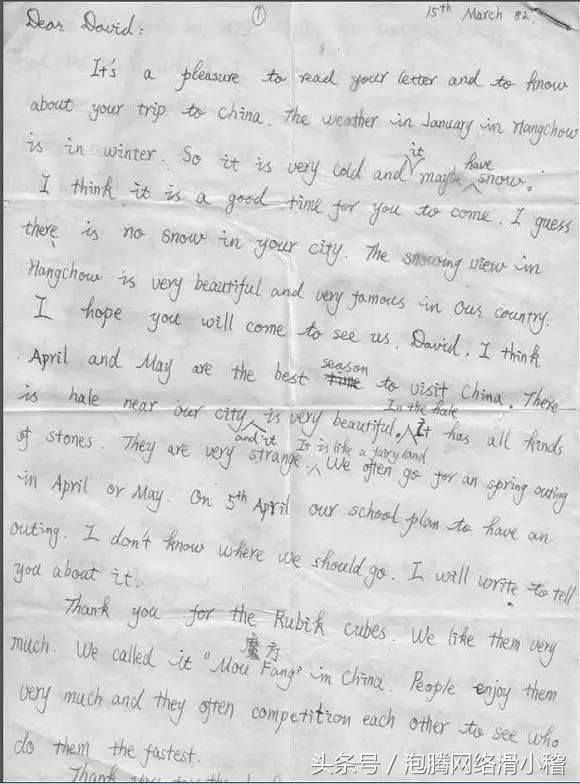 ①
15th March 82
Dear David:
It's a pleasure to read your letter and to know
about your trip to China. The weather in January in Hangchow
is in winter. So it is very cold and it maybe have snow.
I think it is a good time for you to come. I guess
there is no snow in your city. The snowing view in
Hangchow is very beautiful and very famous in our country.
I hope you will come to see us. David, I think
April and May are the best season to visit China. There
is hale near our city and it is very beautiful. In the hale it has all kinds
of stones. They are very strange. It is like a fairy land. We often go for an spring outing
in April or May. On 5th April our school plan to have an
outing. I don't know where we should go. I will write to tell
you about it.
Thank you for the Rubik cubes. We like them very
much. We called it "Mou Fang" 魔方 in China. People enjoy them
very much and they often competition each other to see who
do them the fastest.
Thank you for the
头条号 / 泡腾网络滑小稽